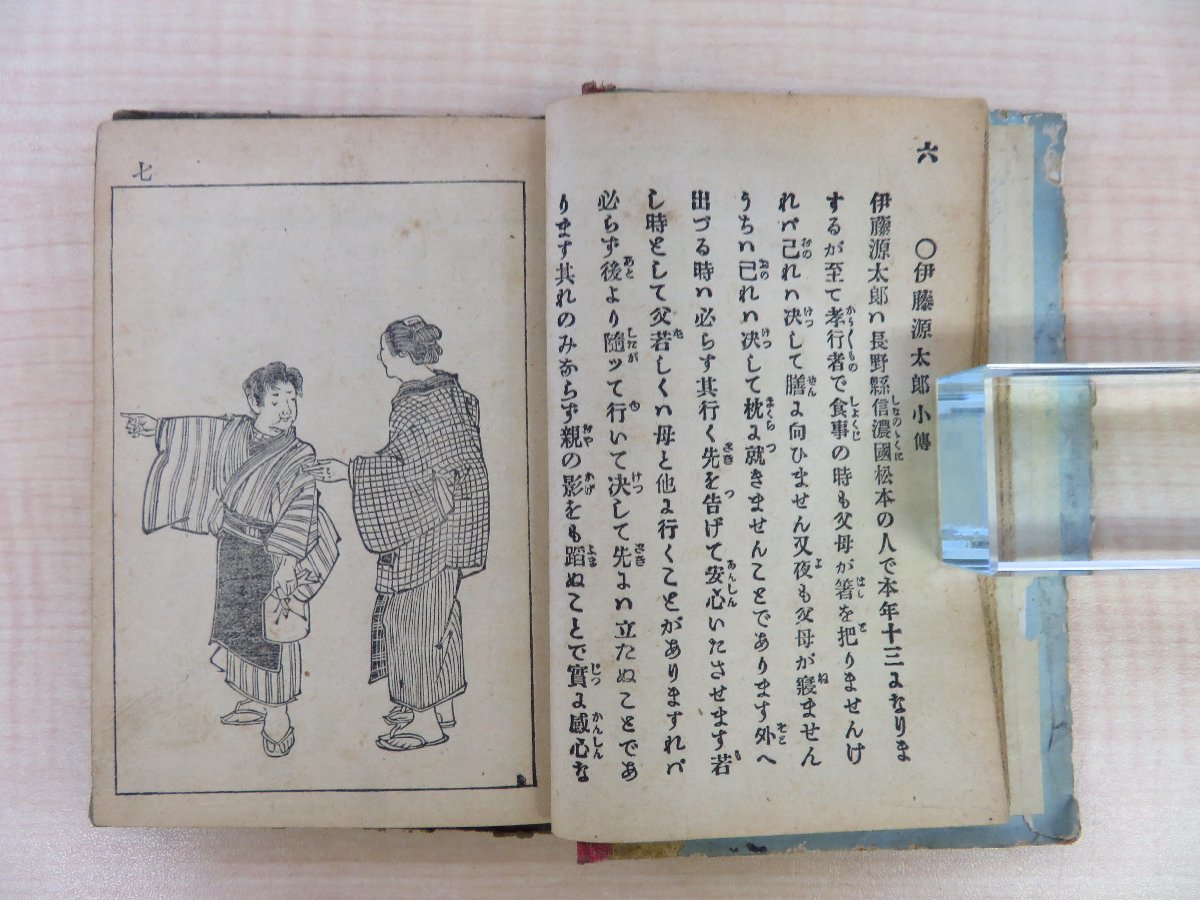 六
〇伊藤源太郎小傳
伊藤源太郎ハ長野縣信濃國松本の人で本年十三になりま
するが至て孝行者で食事の時も父母が箸を把りませんけ
れバ己れハ决して膳に向ひません又夜も父母が寢ません
うちハ己れハ决して枕に就きませんことであります外へ
出づる時ハ必らす其行く先を告げて安心いたさせます若
し時として父若しくハ母と他に行くことがありますれバ
必らず後より隨ッて行いて决して先にハ立たぬことであ
ります其れのみならず親の影をも蹈ぬことで實に感心な
七